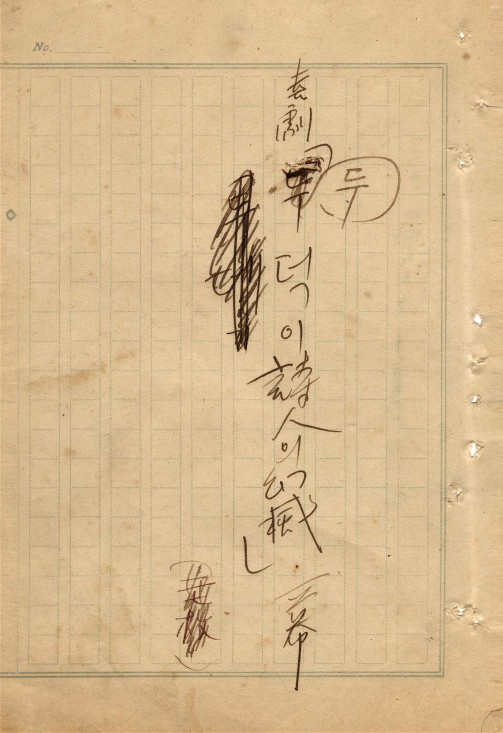 No.
喜劇 두덕이詩人의幻滅」 一幕